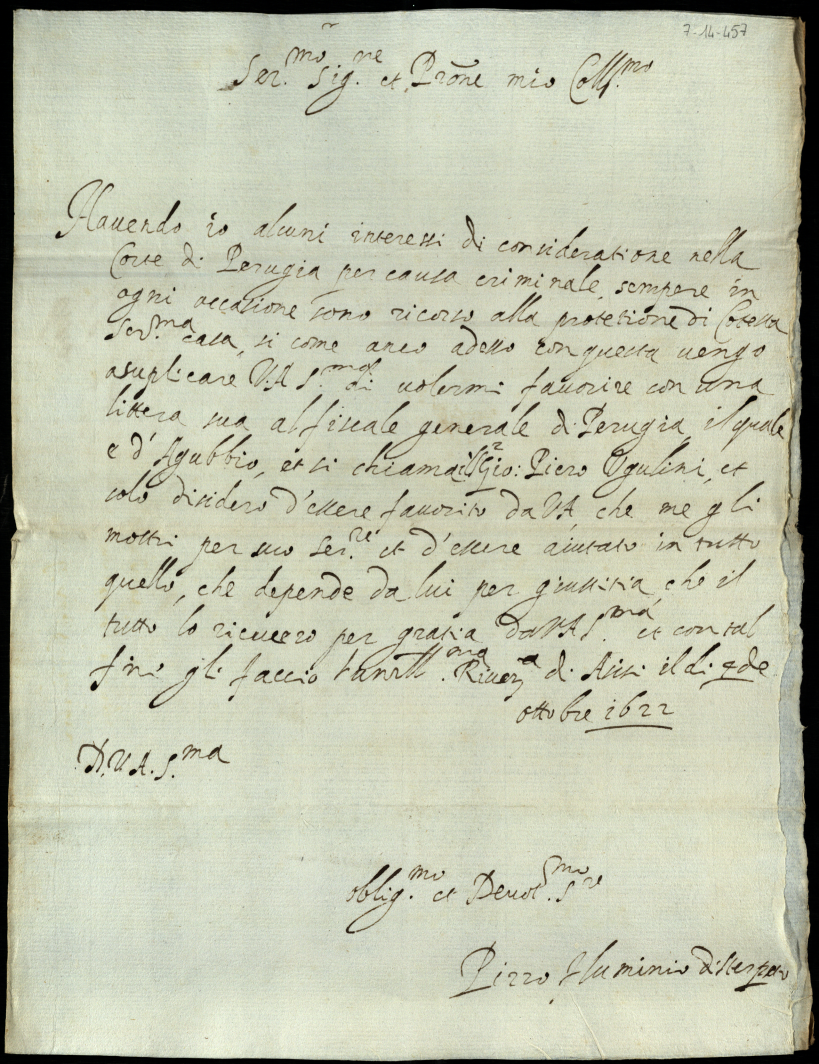 7-14-457
Ser.mo Sig.re et Prõne mio Coll.mo
Havendo io alcuni interessi di consideratione nella
Corte di Perugia per causa criminale, sempere in
ogni occasione sono ricorso alla protetione di Cotesta
Ser.ma casa, si come anco adesso con questa vengo
asuplicare V.A S.ma di volermi favorire con una
littera sua al fiscale generale di Perugia, il quale
e d'Agubbio, et si chiama il Gio: Piero Ugulini, et
solo disidero d'essere favorito da VA, che me gli
mostri per suo Ser.re et d'essere aiutato in tutto
quello, che depende da lui per giustitia, che il
tutto lo ricevero per gratia da VA S.ma et con tal
fine gli faccio Riverza d'Asisi il di 4 de
ottobre 1622
D.V.A.S.ma
oblig.mo et Devot.mo S.re
Pirro Fluminio di Sterpeto